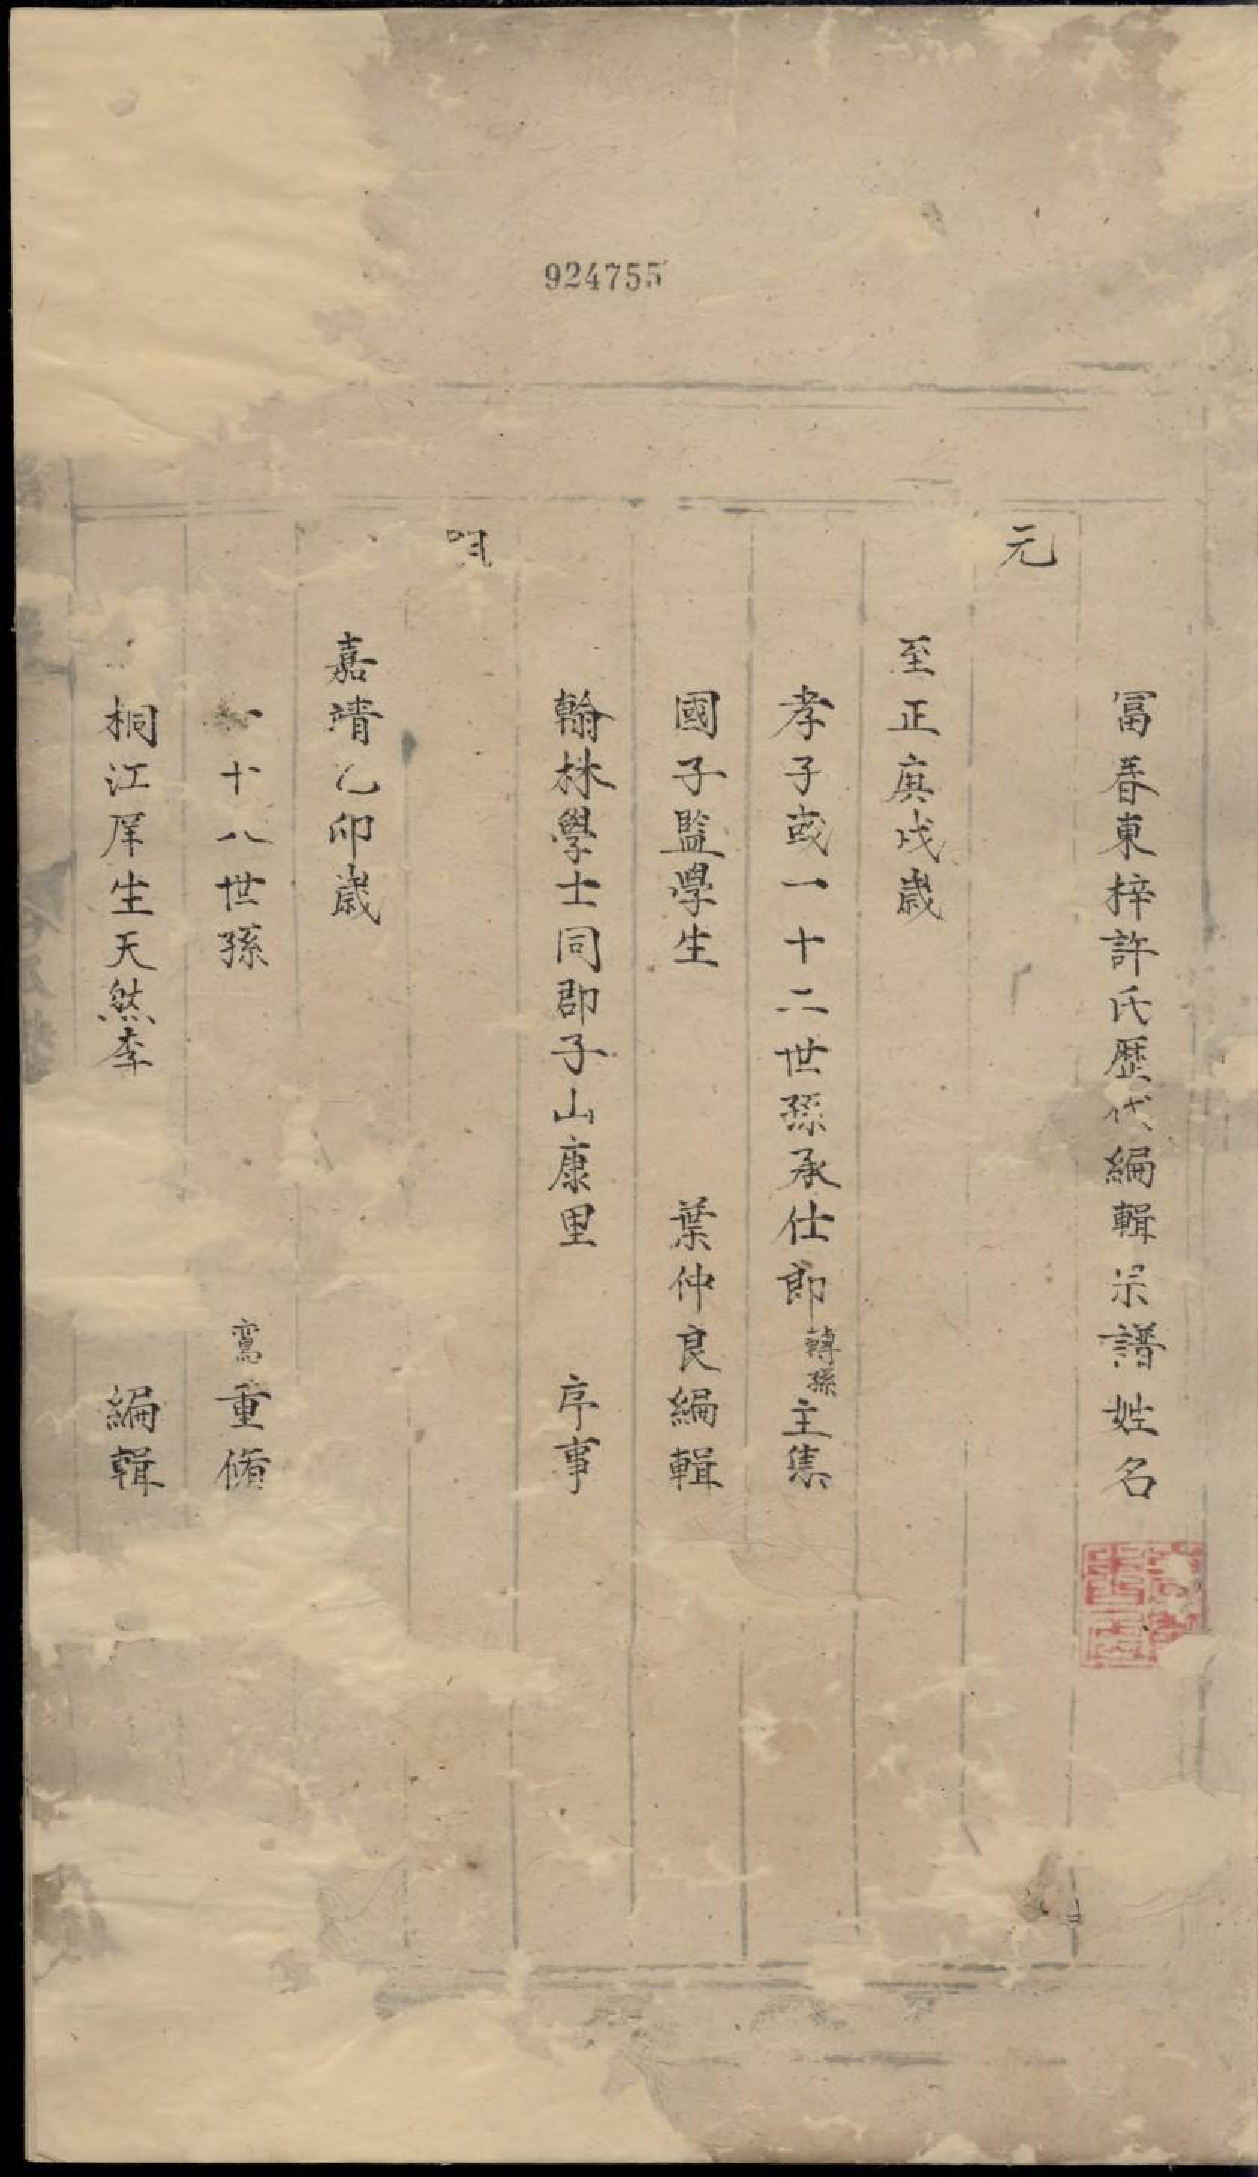 924755
冨春東梓許氏歷代編輯宗譜姓名
元
至正庚戌歲
孝子彧一十二世孫承仕郎轉孫主集
國子監學生 葉仲良編輯
翰林學士同郡子山康里 序事
明
嘉靖乙卯歲
十八世孫 鸞重脩
桐江庠生天然李 編輯